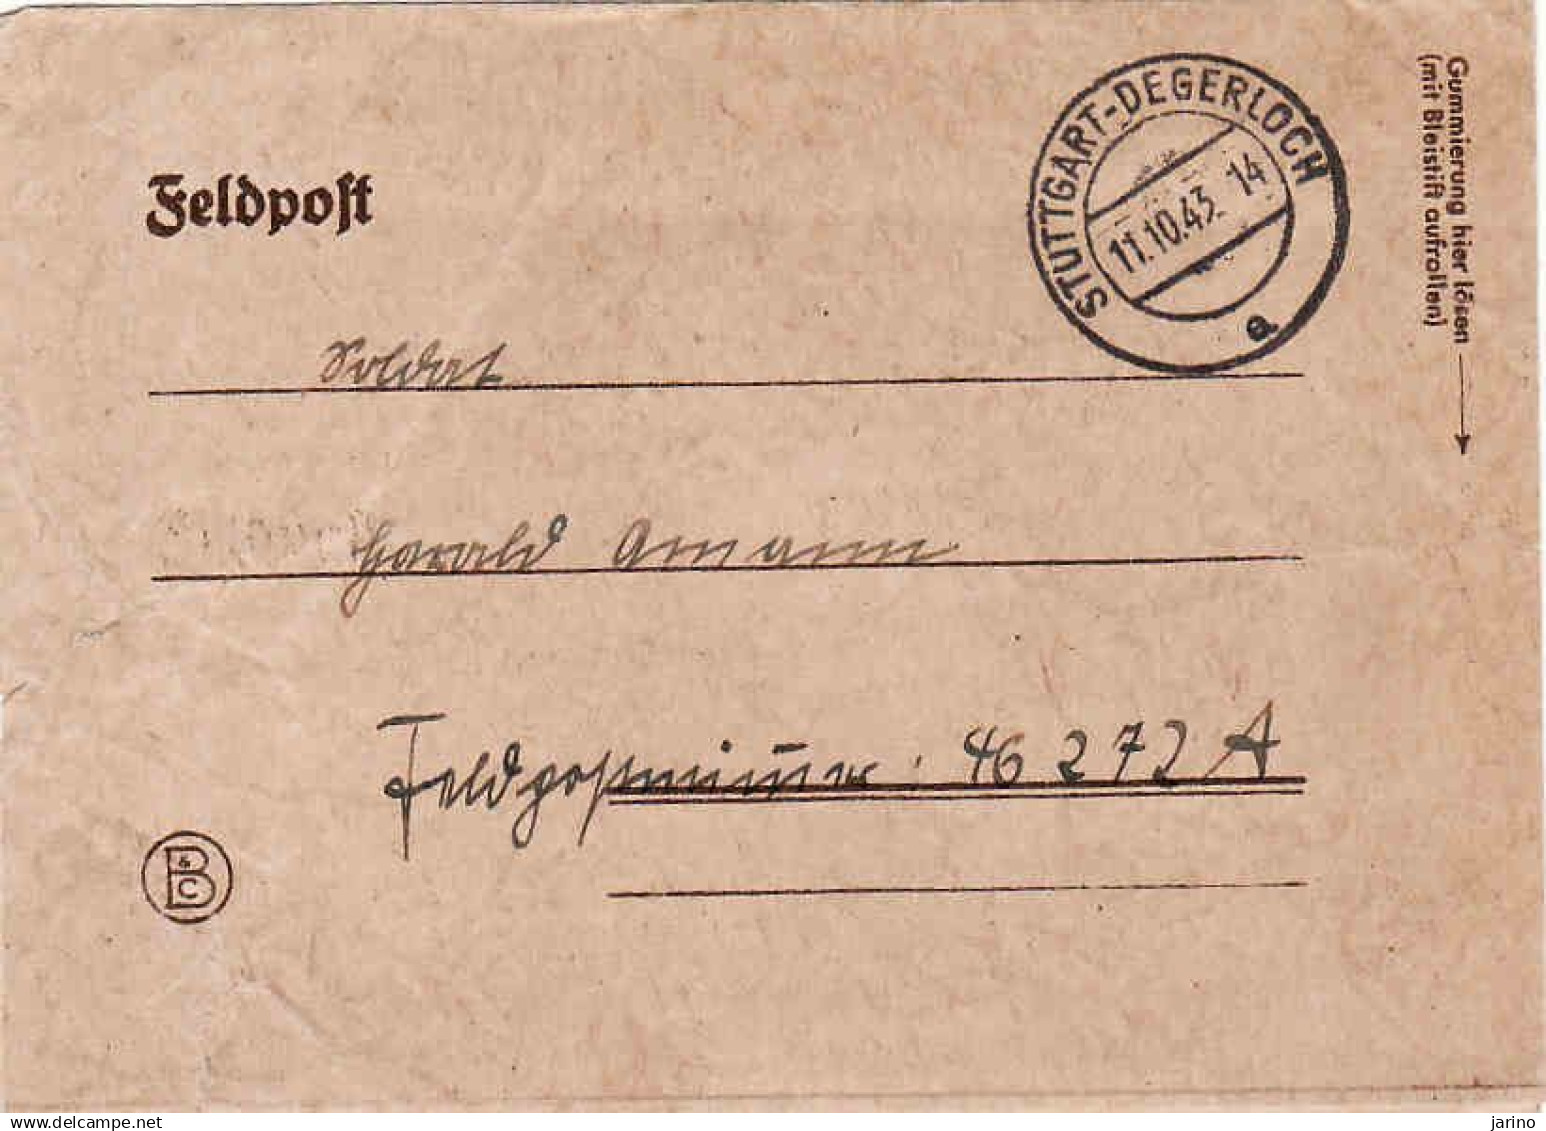 Feldpost
STUTTGART-DEGERLOCH
11.10.43. 14
a
Gummierung hier lösen
(mit Bleistift aufrollen)
Soldat
Harald Amann
Feldpostnummer: 46272 A
B & C
jarino
delcampe.net